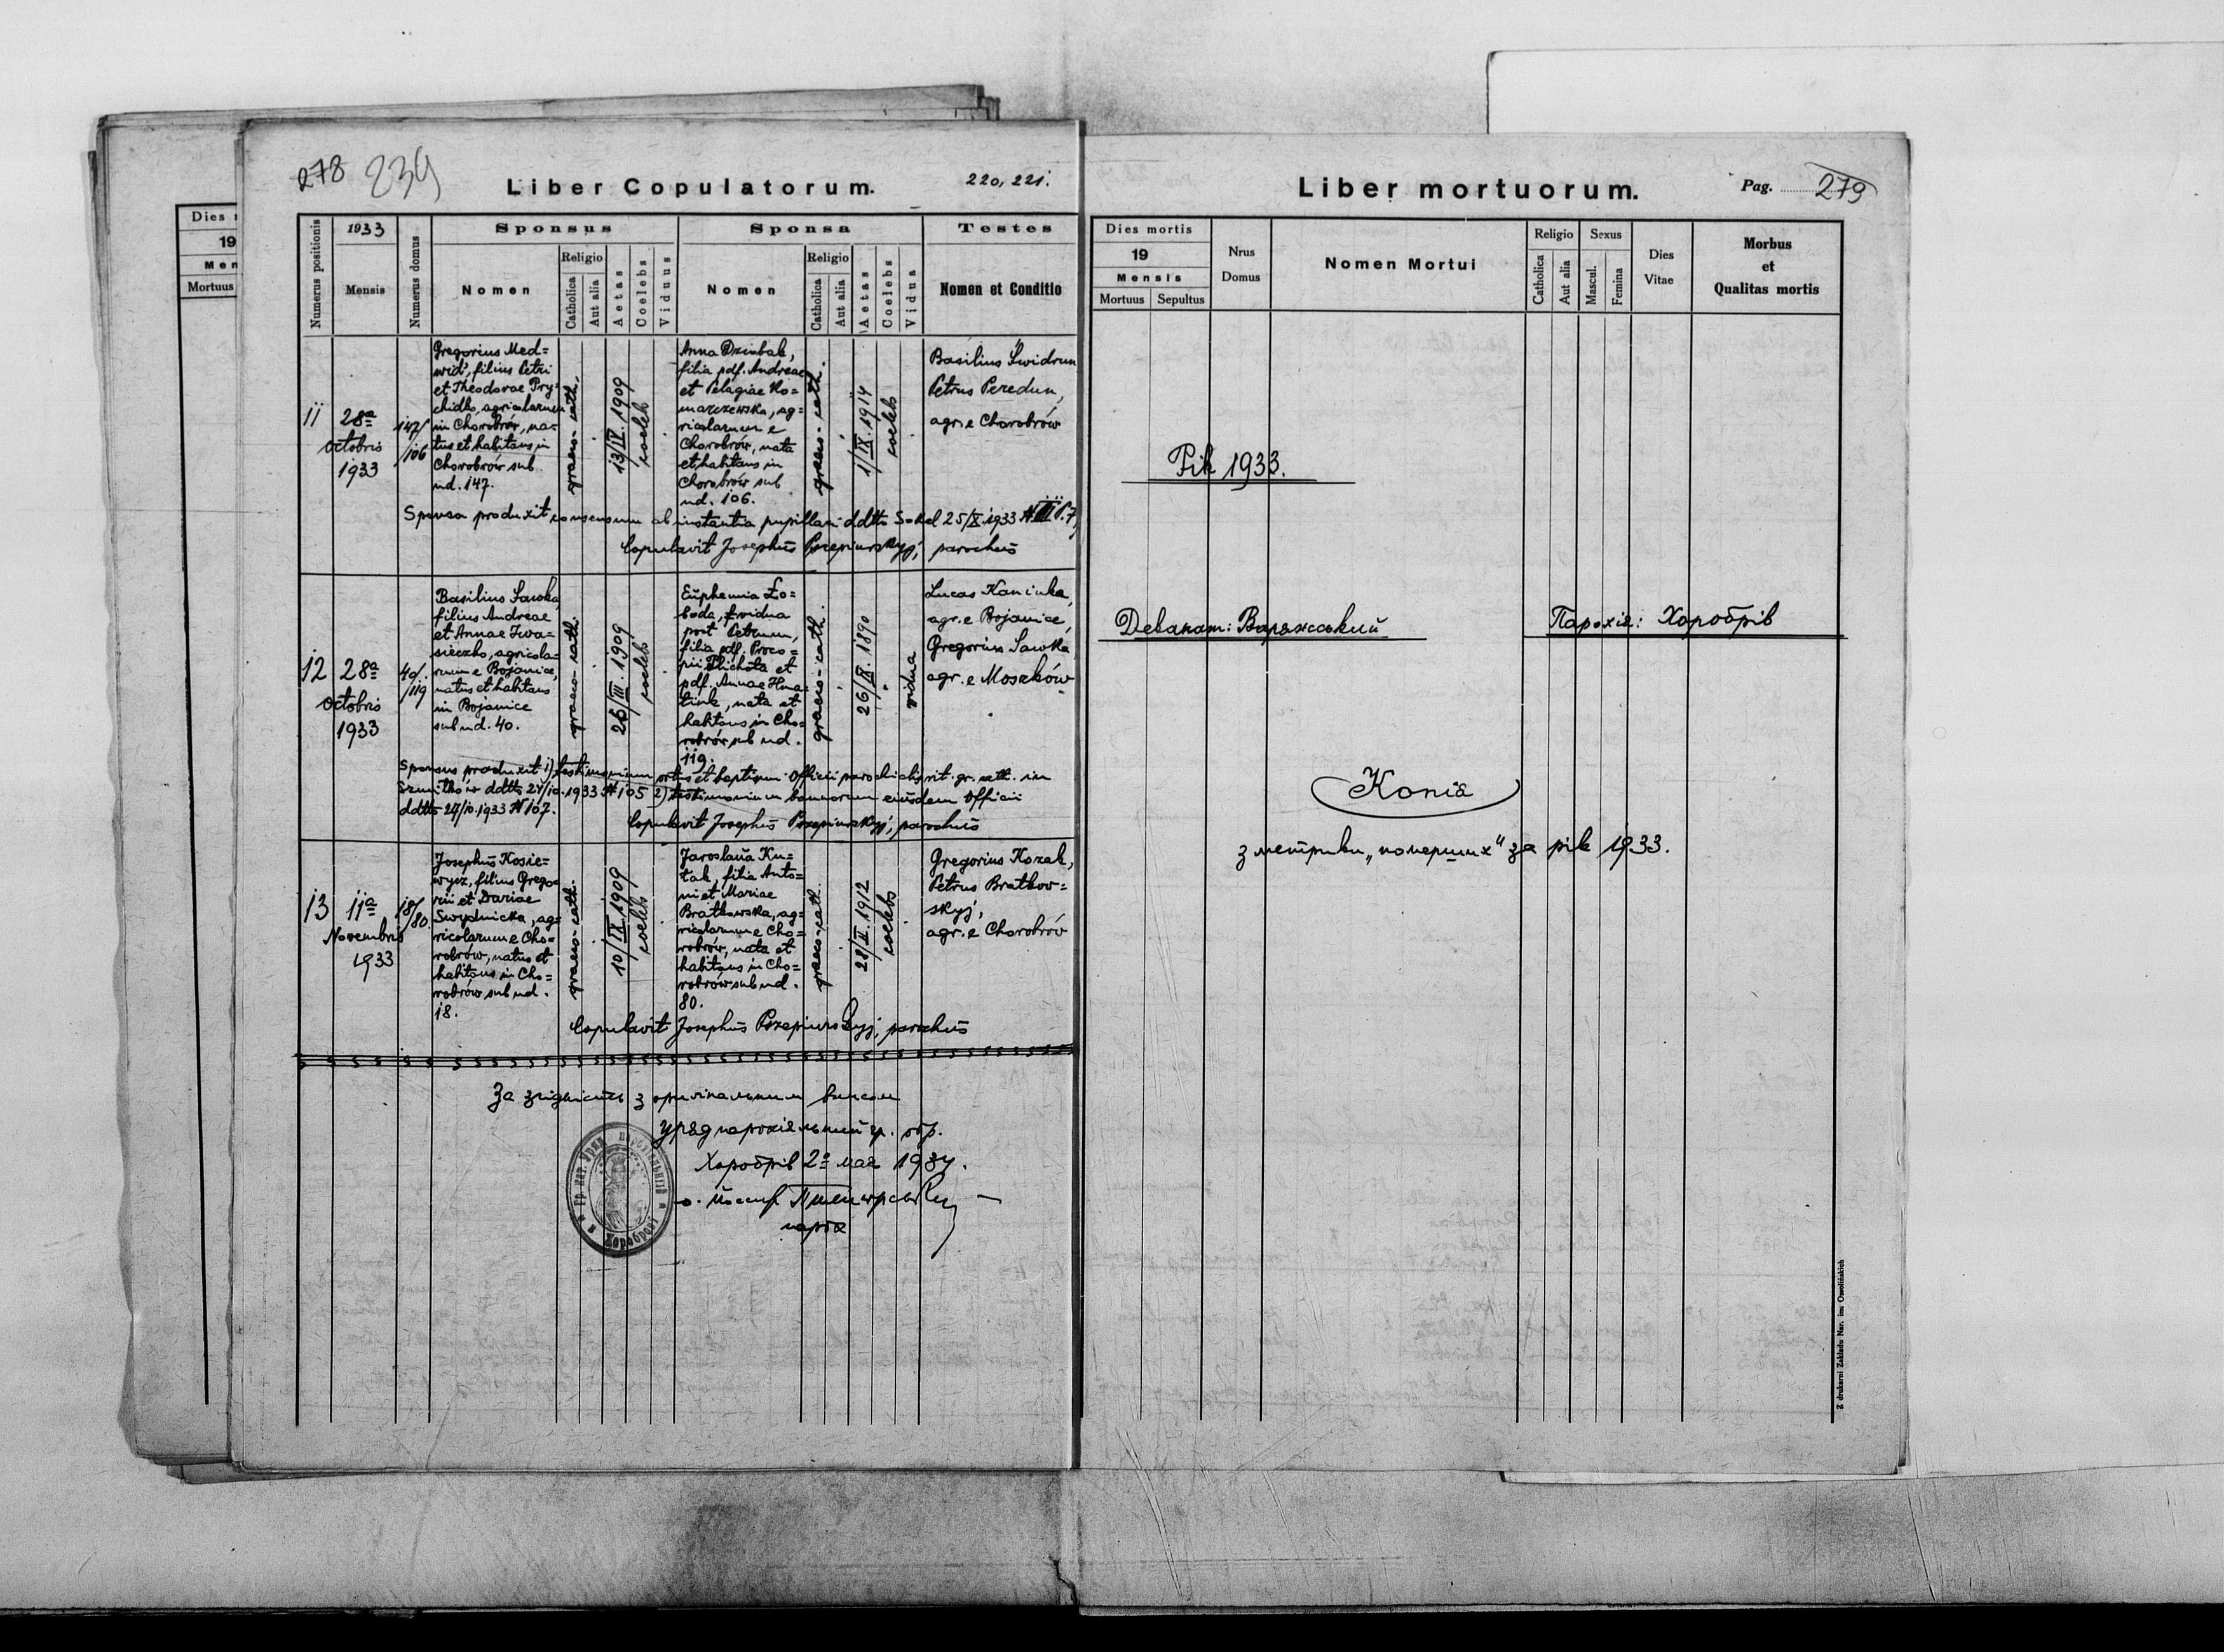 Dies
19
Men
Mortuus
278 234
Liber Copulatorum.
220, 221.
Numerus positionis
1933
Mensis
Numerus domus
Sponsus
Nomen
Religio
Catholica
Aut alia
Aetas
Coelebs
Viduus
Sponsa
Nomen
Religio
Catholica
Aut alia
Aetas
Coelebs
Vidua
Testes
Nomen et Conditio
11
28a
Octobris
1933
147/
/106
Gregorius Med=
wid', filius Petri
et Theodorae Pry=
chidko, agricolarum
in Chorobrów, na=
tus et habitans in
Chorobrów sub
nd. 147.
graeco-cath.
13/IV. 1909
coelebs
Anna Dziubak,
filia pdf. Andreae
et Pelagiae Ko=
marzewska, ag=
ricolarum e
Chorobrów, nata
et habitans in
Chorobrów sub
nd. 106.
graeco-cath.
1/IX. 1914
coelebs
Basilius Świdrun
Petrus Peredun,
agr. e Chorobrów
Sponsa produxit consensum ab instantia pupillari ddtto Sokal 25/X.1933
Copulavit Josephus Pszepiurskyj, parochus
12
28a
Octobris
1933
40/
/119
Basilius Sawka,
filius Andreae
et Annae Iwa=
sieczko, agricola=
rum e Bojanice,
natus et habitans
in Bojanice
sub nd. 40.
graeco-cath.
26/III. 1909
coelebs
Euphemia Ło=
boda, vidua
post Petrum,
filia pdf. Proco=
pii Plichota et
pdf. Annae Hna=
tiuk, nata et
habitans in Cho=
robrów sub nd.
119.
graeco-cath.
26/IX. 1890
vidua
Lucas Kaniuka,
agr. e Bojanice,
Gregorius Sawka
agr. e Moszków
Sponsus produxit 1) testimonium ortus et baptismi Officii parochialis rit. gr. cath. in
Szmitków ddtto 27/10.1933 N 105 2) testimonium bannorum eiusdem Officii
ddtto 27/10.1933 N 107.
Copulavit Josephus Pszepiurskyj, parochus
13
11a
Novembris
1933
18/
/80.
Josephus Kosie=
wycz, filius Grego=
rii et Dariae
Swydnicka, ag=
ricolarum e Cho=
robrów, natus et
habitans in Cho=
robrów sub nd.
18.
graeco-cath.
10/IX. 1909
coelebs
Jaroslava Ku=
łak, filia Anto=
ni et Mariae
Bratkowska, ag=
ricolarum e Cho=
robrów, nata et
habitans in Cho=
robrów sub nd.
80.
graeco-cath.
28/II. 1912
coelebs
Gregorius Kozak,
Petrus Bratkow=
skyj,
agr. e Chorobrów
Copulavit Josephus Pszepiurskyj, parochus
За згідність з оригінальним вписом
уряд парохіяльний гр. обр.
Хоробрів 2го мая 1934.
о. Йосиф
парох
Liber mortuorum.
Pag. 279
Dies mortis
19
Mensis
Mortuus
Sepultus
Nrus
Domus
Nomen Mortui
Religio
Catholica
Aut alia
Sexus
Mascul.
Femina
Dies
Vitae
Morbus
et
Qualitas mortis
Рік 1933.
Деканат: Варяжський
Парохія: Хоробрів
Копія
з метрики „померших" за рік 1933.
Z drukarni Zakładu Nar. im. Ossolińskich